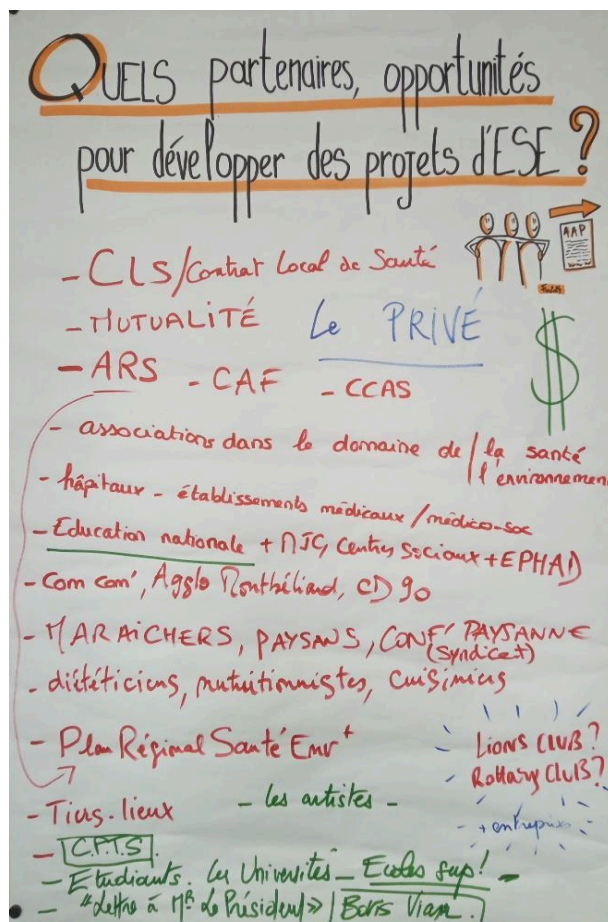 QUELS partenaires, opportunités
pour développer des projets d'ESE ?
AAP
- CLS/Contrat Local de Santé
- MUTUALITÉ
Le PRIVÉ
$
- ARS - CAF - CCAS
- associations dans le domaine de / la santé
l'environnement
- hôpitaux - établissements médicaux / médico-soc
- Education nationale + MJC, Centres sociaux + EPHAD
- Com com', Agglo Montbéliard, CD 90
- MARAÎCHERS, PAYSANS, CONF' PAYSANNE
(Syndicat)
- diététiciens, nutritionnistes, cuisiniers
- Plan Régional Santé Env^t
Lions CLUB ?
Rottary CLUB ?
- Tiers-lieux
- les artistes -
+ entreprises
- C.P.T.S.
- Etudiants. Les Universités - Ecoles sup! -
- "Lettre à Mr Le Président" / Boris Vian.